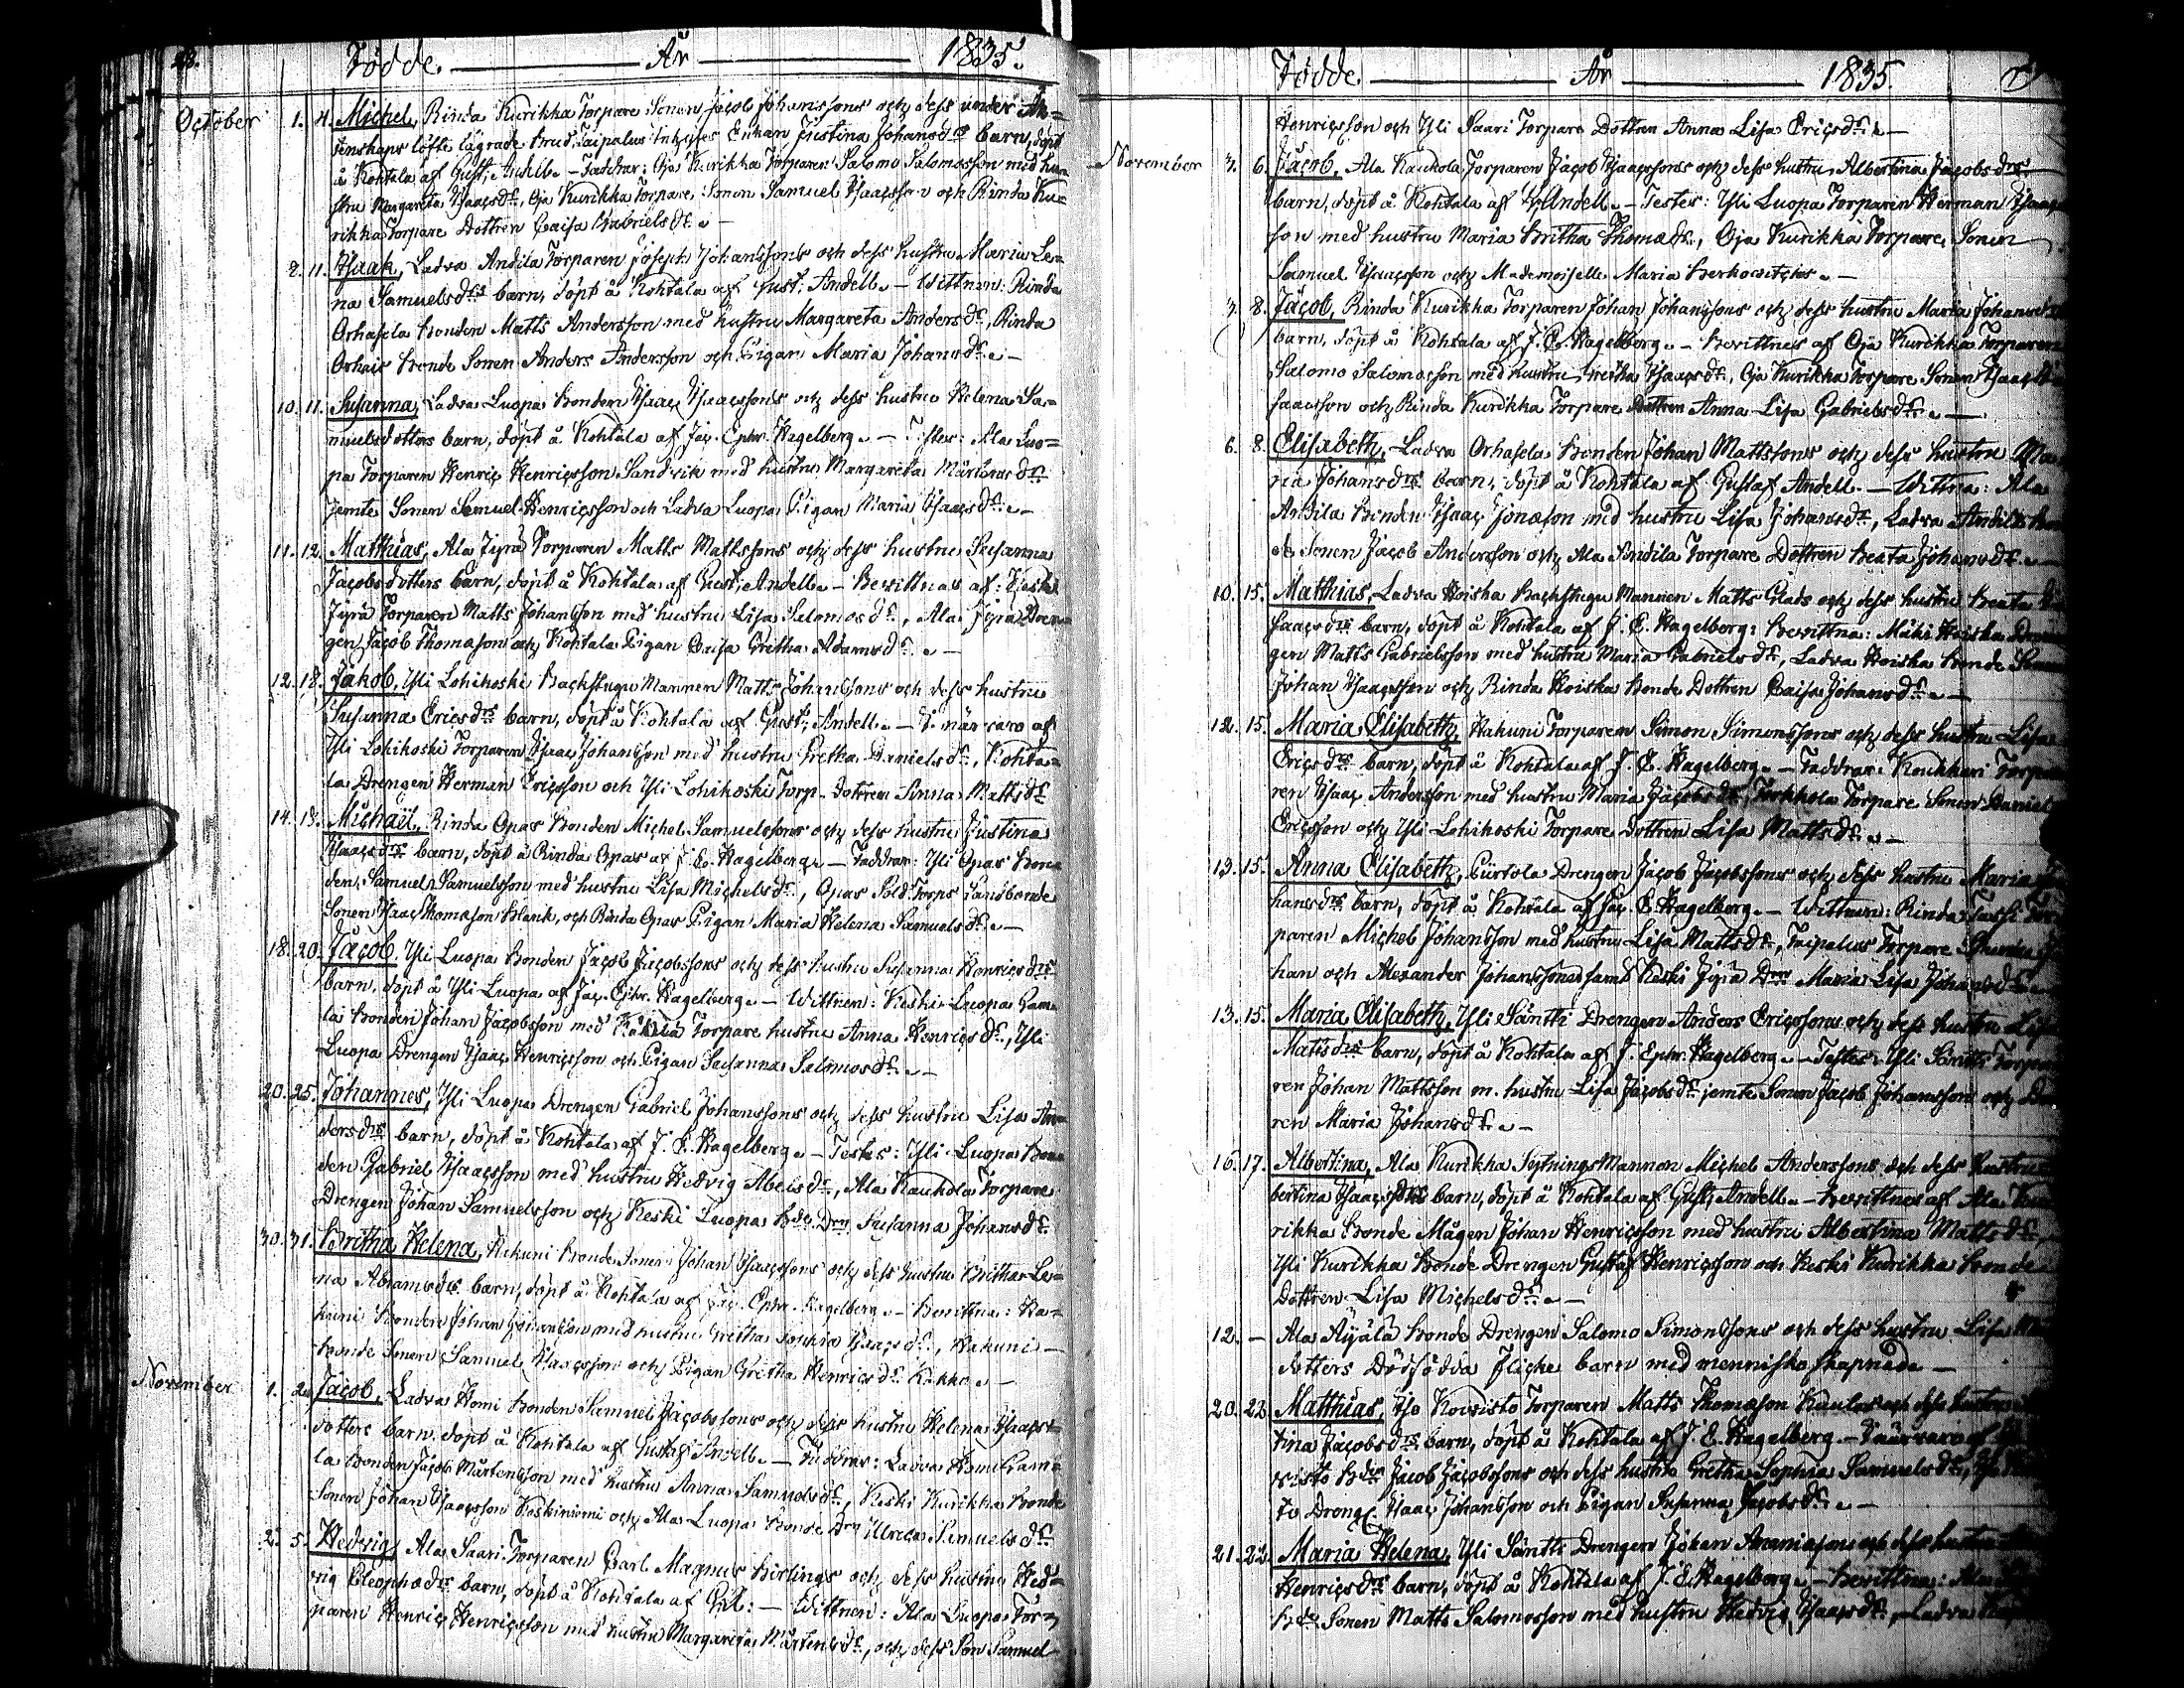 28.
Födde. År 1835.
October 1. 4. Michel, Rinda Kurikka Torpare Sonen Jacob Johanssons och dess under Äk=
tenskaps löfte lägrade Brud, Taipalus Inhyses Enkan Justina Johansdrs barn, döpt
å Kohtala af Gust. Andell. – Faddrar: Oja Kurikka Torparen Salomo Salomosson med hu=
stru Margareta Isaacsdr, Oja Kurikka Torpare Sonen Samuel Isaacsson och Rinda Ku=
rikka Torpare Dottren Caisa Gabrielsdr. –
8. 11. Isaak, Ladva Andila Torparen Joseph Johanssons och dess hustru Maria Le=
na Samuelsdrs barn, döpt å Kohtala af Gust. Andell. – Wittnen: Rinda
Orhasela Bonden Matts Andersson med hustru Margareta Andersdr, Rinda
Orhais Bonde Sonen Anders Andersson och Pigan Maria Johansdr. –
10. 11. Susanna, Ladva Luopa Bonden Isaac Isaacssons och dess hustru Helena Sa=
muelsdotters barn, döpt å Kohtala af Jac. Ephr. Hagelberg. – Testes: Ala Luo=
pa Torparen Henric Henricsson Sandvik med hustru Margareta Mårtensdr
jemte Sonen Samuel Henricsson och Ladva Luopa Pigan Maria Isaacsdr. –
11. 12. Matthias, Ala Jyrä Torparen Matts Mattssons och dess hustru Susanna
Jacobsdotters barn, döpt å Kohtala af Gust. Andell. – Bevittnas af: Keski
Jyrä Torparen Matts Johansson med hustru Lisa Salomosdr, Ala Jyrä Dren=
gen Jacob Thomasson och Kohtala Pigan Caisa Gretha Adamsdr. –
12. 18. Jakob, Yli Lohikoski Backstugu Mannen Matts Johanssons och dess hustru
Susanna Ericsdrs barn, döpt å Kohtala af Gust. Andell. – I närvaro af
Yli Lohikoski Torparen Isaac Johansson med hustru Gretha Danielsdr, Kohta=
la Drengen Herman Ericsson och Yli Lohikoski Torp. dottren Anna Mattsdr
14. 18. Michaël, Rinda Opas Bonden Michel Samuelssons och dess hustru Justina
Isaacsdrs barn, döpt å Rinda Opas af J. E. Hagelberg. – Faddrar: Yli Opas Bon=
den Samuel Samuelsson med hustru Lisa Michelsdr, Opas Sold. Torps Landbonde
Sonen Isaac Thomasson Blank, och Rinda Opas Pigan Maria Helena Samuelsdr. –
18. 20. Jacob, Yli Luopa Bonden Jacob Jacobssons och dess hustru Susanna Henricsdrs
barn, döpt å Yli Luopa af Jac. Ephr. Hagelberg. – Wittnen: Keski Luopa Gam=
la Bonden Johan Jacobsson med Torpare hustru Anna Henricsdr, Yli
Luopa Drengen Isaac Henricsson och Pigan Susanna Salmosdr. –
20. 25. Johannes, Yli Luopa Drengen Gabriel Johanssons och dess hustru Lisa An=
dersdrs barn, döpt å Kohtala af J. E. Hagelberg. – Testes: Yli Luopa Bon=
den Gabriel Isaacsson med hustru Hedvig Abelsdr, Ala Kaukola Torpare
Drengen Johan Samuelsson och Keski Luopa Bde Drn Susanna Johansdr.
30. 31. Britha Helena, Hakuni Bonde Sonen Johan Isaacssons och dess hustru Britha Le=
na Abramsdrs barn, döpt å Kohtala af Jac. Ephr. Hagelberg. – Bevittna: Ha=
kuni Bonden Johan med hustru Gretha Isaacsdr, Hakuni
Bonde Sonen Samuel Isaacsson och Pigan Gretha Henricsdr Kakko. –
November 1. 2. Jacob, Ladva Homi Bonden Samuel Jacobssons och dess hustru Helena Isaacs
dotters barn, döpt å Kohtala af Gustaf Andell. – Faddrar: Ladva Homi Gam=
la Bonden Jacob Mårtensson med hustru Anna Samuelsdr, Keski Kurikka Bonde
Sonen Johan Isaacsson Koskiniemi och Ala Luopa Bonde Drn Ullrica Samuelsdr
2. 5. Hedvig, Ala Saari Torparen Carl Magnus Birlings och dess hustru Hed=
vig Cleophædrs barn, döpt å Kohtala af – Wittnen: Ala Luopa Tor=
paren Henric Henricsson med hustru Margareta Mårtensdr, och dess Son Samuel
Födde. År 1835.
Henricsson och Yli Saari Torpare Dottren Anna Lisa Ericsdr. –
November 3. 6. Jacob, Ala Kaukola Torparen Jacob Isaacssons och dess hustru Albertina Jacobsdrs
barn, döpt å Kohtala af G. Andell. – Testes: Yli Luopa Torparen Herman Isaacs
son med hustru Maria Britha Thomædr, Oja Kurikka Torpare Sonen
Samuel Isaacsson och Mademoiselle Maria –
7. 8. Jacob, Rinda Kurikka Torparen Johan Johanssons och dess hustru Maria Johansdrs
barn, döpt å Kohtala af J. E. Hagelberg. – Bevittnes af Oja Kurikka Torparen
Salomo Salomosson med hustru Gretha Isaacsdr, Oja Kurikka Torpare Sonen Isaac I=
saacsson och Rinda Kurikka Torpare Dottren Anna Lisa Gabrielsdr. –
6. 8. Elisabeth, Ladva Orhasela Bonden Johan Mattssons och dess hustru Ma=
ria Johansdrs barn, döpt å Kohtala af Gustaf Andell. – Wittna: Ala
Andila Bonden Isaac Jonæson med hustru Lisa Johansdr, Ladva Andila
Sonen Jacob Andersson och Ala Andila Torpare Dottren Beata Johansdr. –
10. 15. Matthias, Ladva Koiska Backstugu Mannen Matts Glads och dess hustru Beata I=
saacsdrs barn, döpt å Kohtala af J. E. Hagelberg: Bevittna: Mäki Koiska Dren=
gen Matts Gabrielsson med hustru Maria Gabrielsdr, Ladva Koiska Bonde Sonen
Johan Isaacsson och Rinda Koiska Bonde Dottren Caisa Johansdr. –
12. 15. Maria Elisabeth, Hakuni Torparen Simon Simonssons och dess hustru Lisa
Ericsdrs barn, döpt å Kohtala af J. E. Hagelberg. – Faddrar: Koukkari Torpa=
ren Isaac Andersson med hustru Maria Jacobsdr, Torkkola Torpare Sonen Daniel
Ericsson och Yli Lohikoski Torpare dottren Lisa Mattsdr. –
13. 15. Anna Elisabeth, Piirtola Drengen Jacob Jacobssons och dess hustru Maria Jo=
hansdrs barn, döpt å Kohtala af Jac. E. Hagelberg. – Wittnen: Rinda Tor=
paren Michel Johansson med hustru Lisa Mattsdr, Taipalus Torpare Jo=
han och Alexander Johanssöner samt Keski Jyrä Drn Maria Lisa Johansdr. –
13. 15. Maria Elisabeth, Yli Säntti Drengen Anders Ericssons och dess hustru Lisa
Mattsdrs barn, döpt å Kohtala af J. Ephr. Hagelberg. – Testes: Yli Säntti Torpa=
ren Johan Mattsson m. hustru Lisa Jacobsdr jemte Sonen Jacob Johansson och
ren Maria Johansdr. –
16. 17. Albertina, Ala Kurikka Sytnings Mannen Michel Anderssons och dess hustru
bertina Isaacsdrs barn, döpt å Kohtala af Gust. Andell. – Bevittnes af Ala Ku=
rikka Bonde Mågen Johan Henricsson med hustru Albertina Mattsdr,
Yli Kurikka Bonde Drengen Gustaf Henricsson och Keski Kurikka Bonde
Dottren Lisa Michelsdr. –
12. – Ala Äyälä Bonde Drengen Salomo Simonssons och dess hustru Lisa
dotters Dödfödda Flicke barn med mennisko skapnade –
20. 22. Matthias, Iso Koivisto Torparen Matts Thomasson och dess hustru
tina Jacobsdrs barn, döpt å Kohtala af J. E. Hagelberg. – I närvaro af
visto Bden Jacob Jacobssons och dess hustru Gretha Sophia Samuelsdr,
to Dreng. Isaac Johansson och Pigan Susanna Jacobsdr. –
21. 22. Maria Helena, Yli Säntti Drengen Johan Ananiæsons och dess hustru
Henricsdrs barn, döpt å Kohtala af J. E. Hagelberg. – Bevittna: Ala
Bde Sonen Matts Salomosson med hustru Hedvig Isaacsdr, Ladva